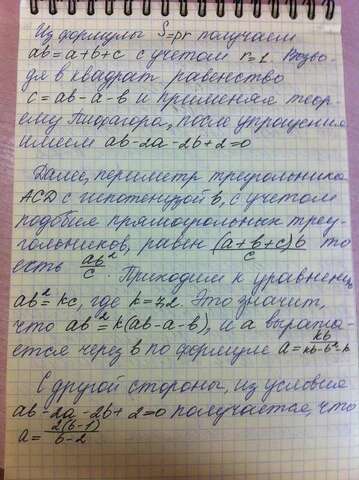 Из формулы S=pr получаем
ab=a+b+c с учетом r=1. Возво-
дя в квадрат равенство
c=ab-a-b и применяя теор-
ему Пифагора, после упрощения
имеем ab-2a-2b+2=0
Далее, периметр треугольника
ACD с гипотенузой b, с учетом
подобия прямоугольных треу-
гольников, равен (a+b+c)b/c то
есть ab²/c. Приходим к уравнению
ab²=kc, где k=7,2. Это значит,
что ab²=k(ab-a-b), и a выража-
ется через b по формуле a=kb/kb-b²-k
С другой стороны, из условия
ab-2a-2b+2=0 получается, что
a=2(b-1)/b-2